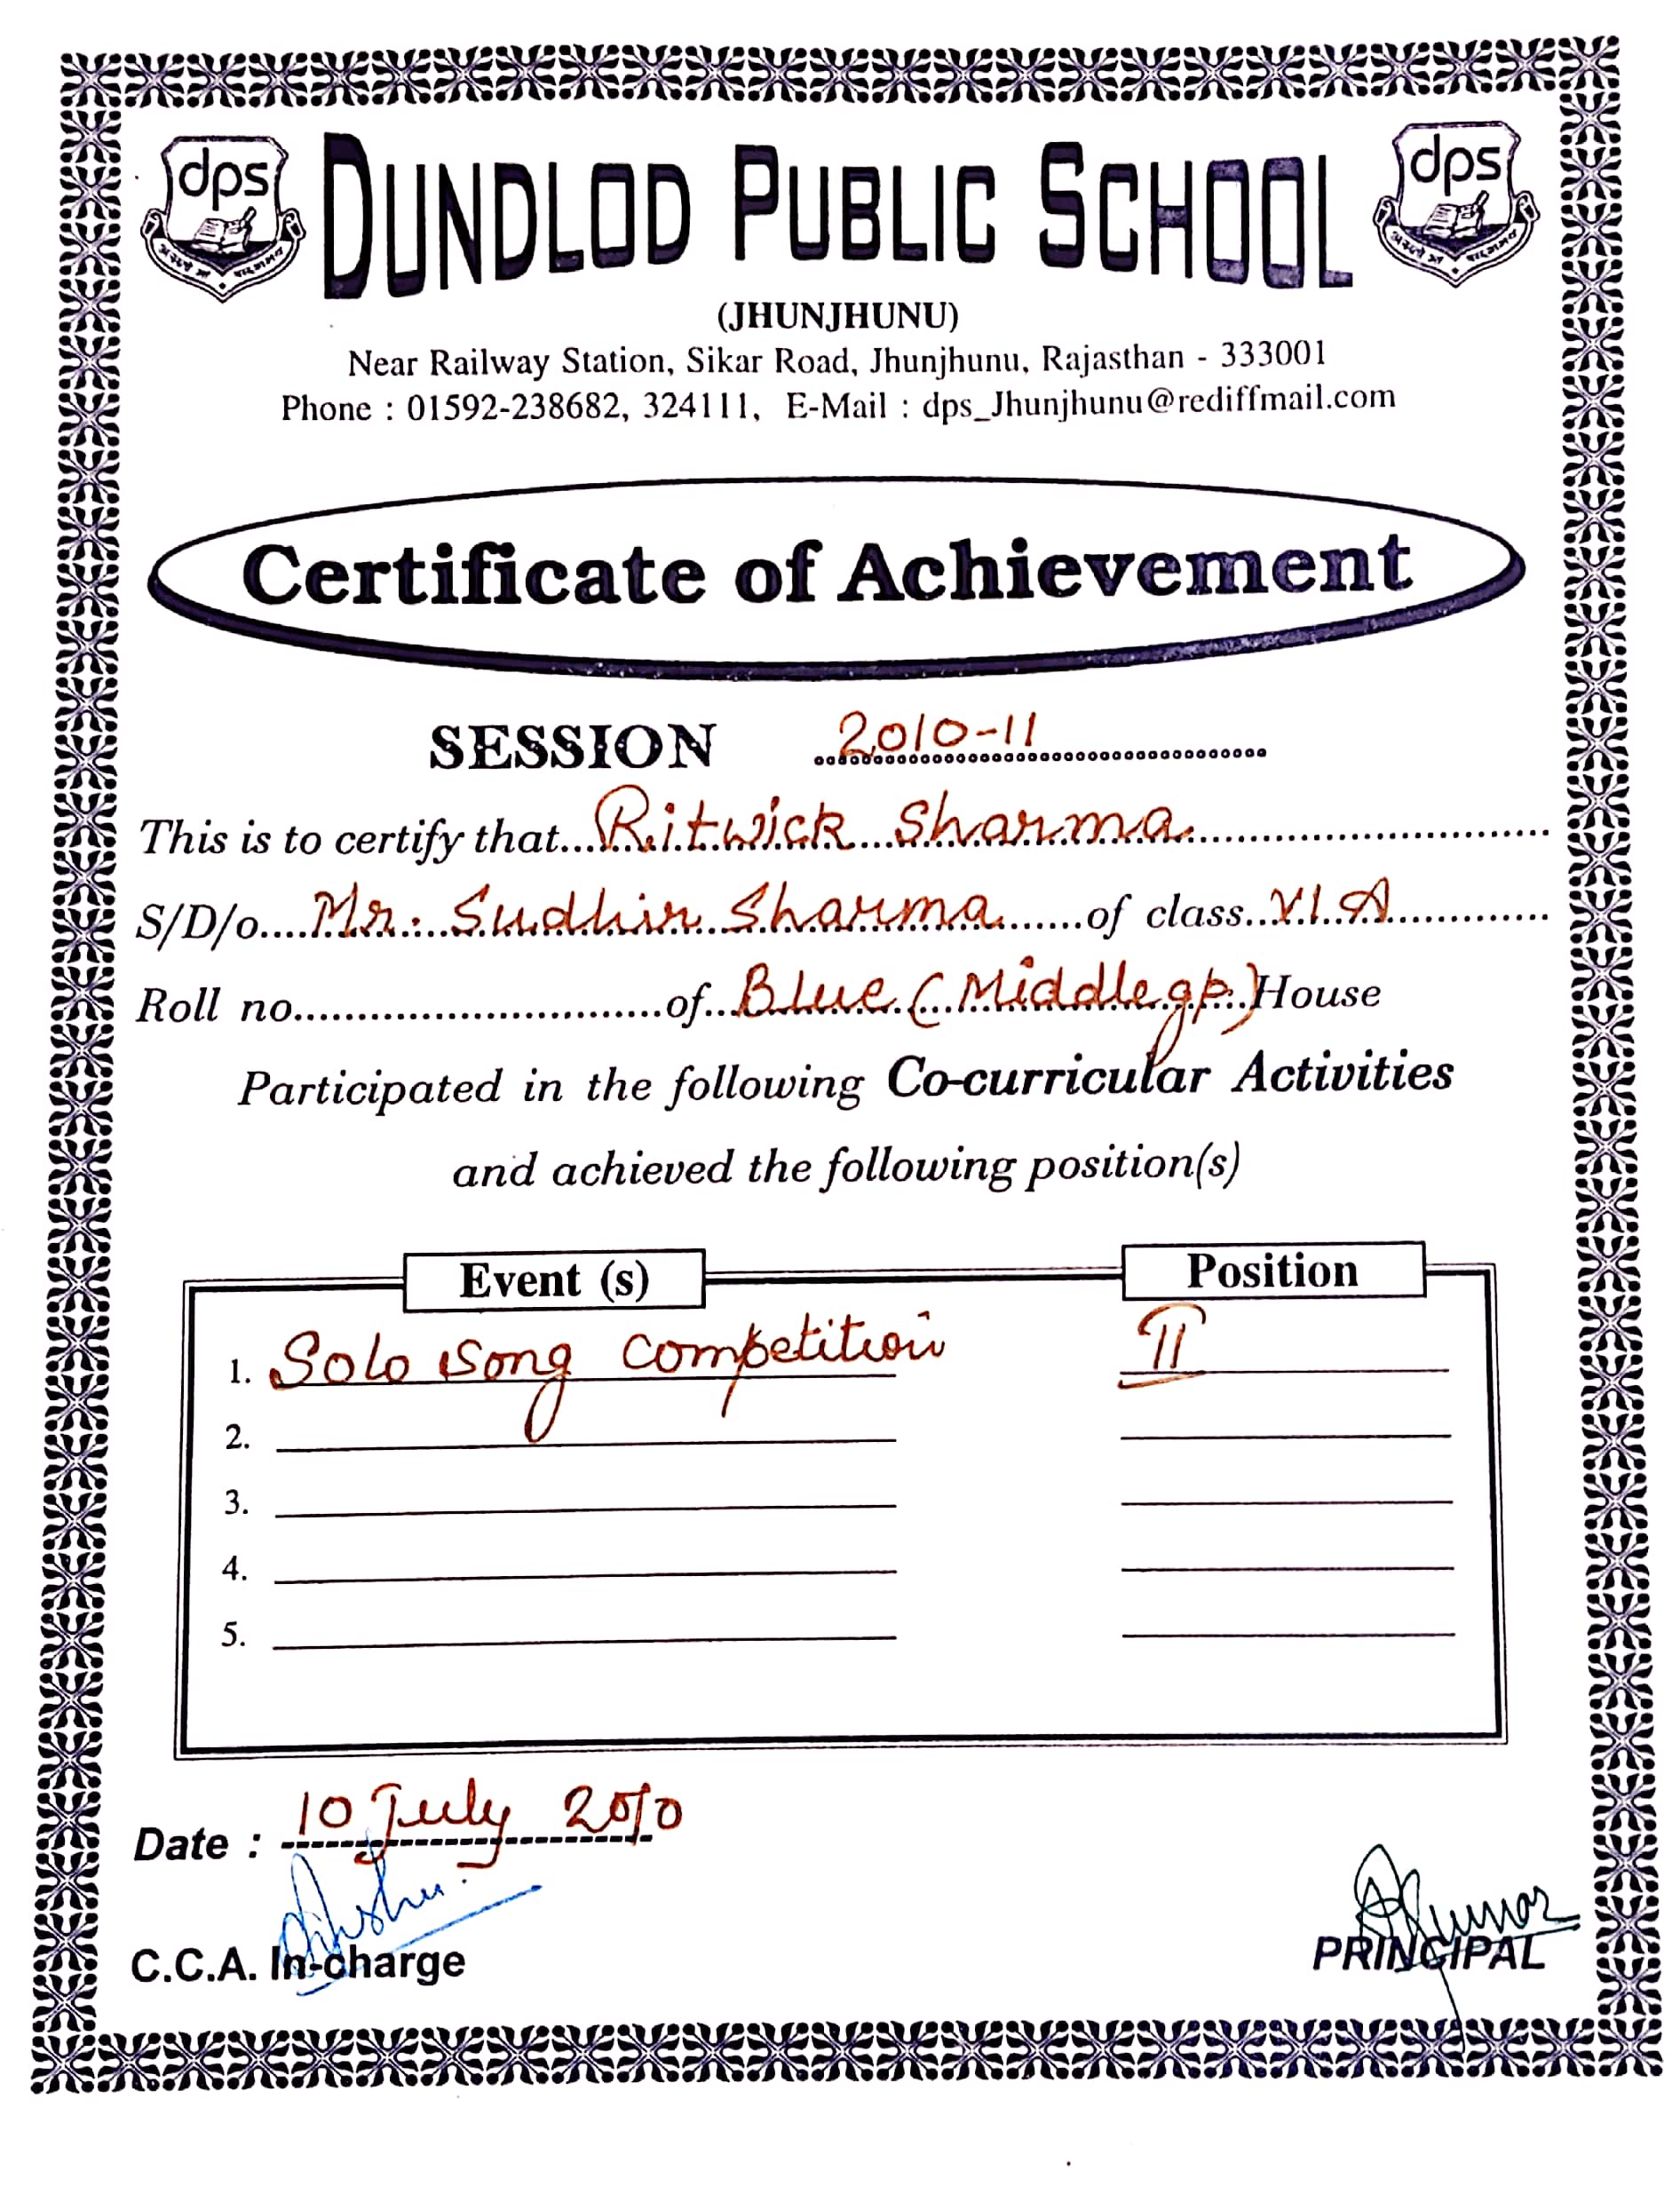 dps DUNDLOD PUBLIC SCHOOL dps
(JHUNJHUNU)
Near Railway Station, Sikar Road, Jhunjhunu, Rajasthan - 333001
Phone : 01592-238682, 324111, E-Mail : dps_Jhunjhunu@rediffmail.com
Certificate of Achievement
SESSION 2010-11
This is to certify that Ritwick Sharma
S/D/o Mr. Sudhir Sharma of class VI A
Roll no. of Blue (Middle gp) House
Participated in the following Co-curricular Activities
and achieved the following position(s)
Event (s) Position
1. Solo Song Competition II
2.
3.
4.
5.
Date : 10 July 2010
C.C.A. In-charge PRINCIPAL